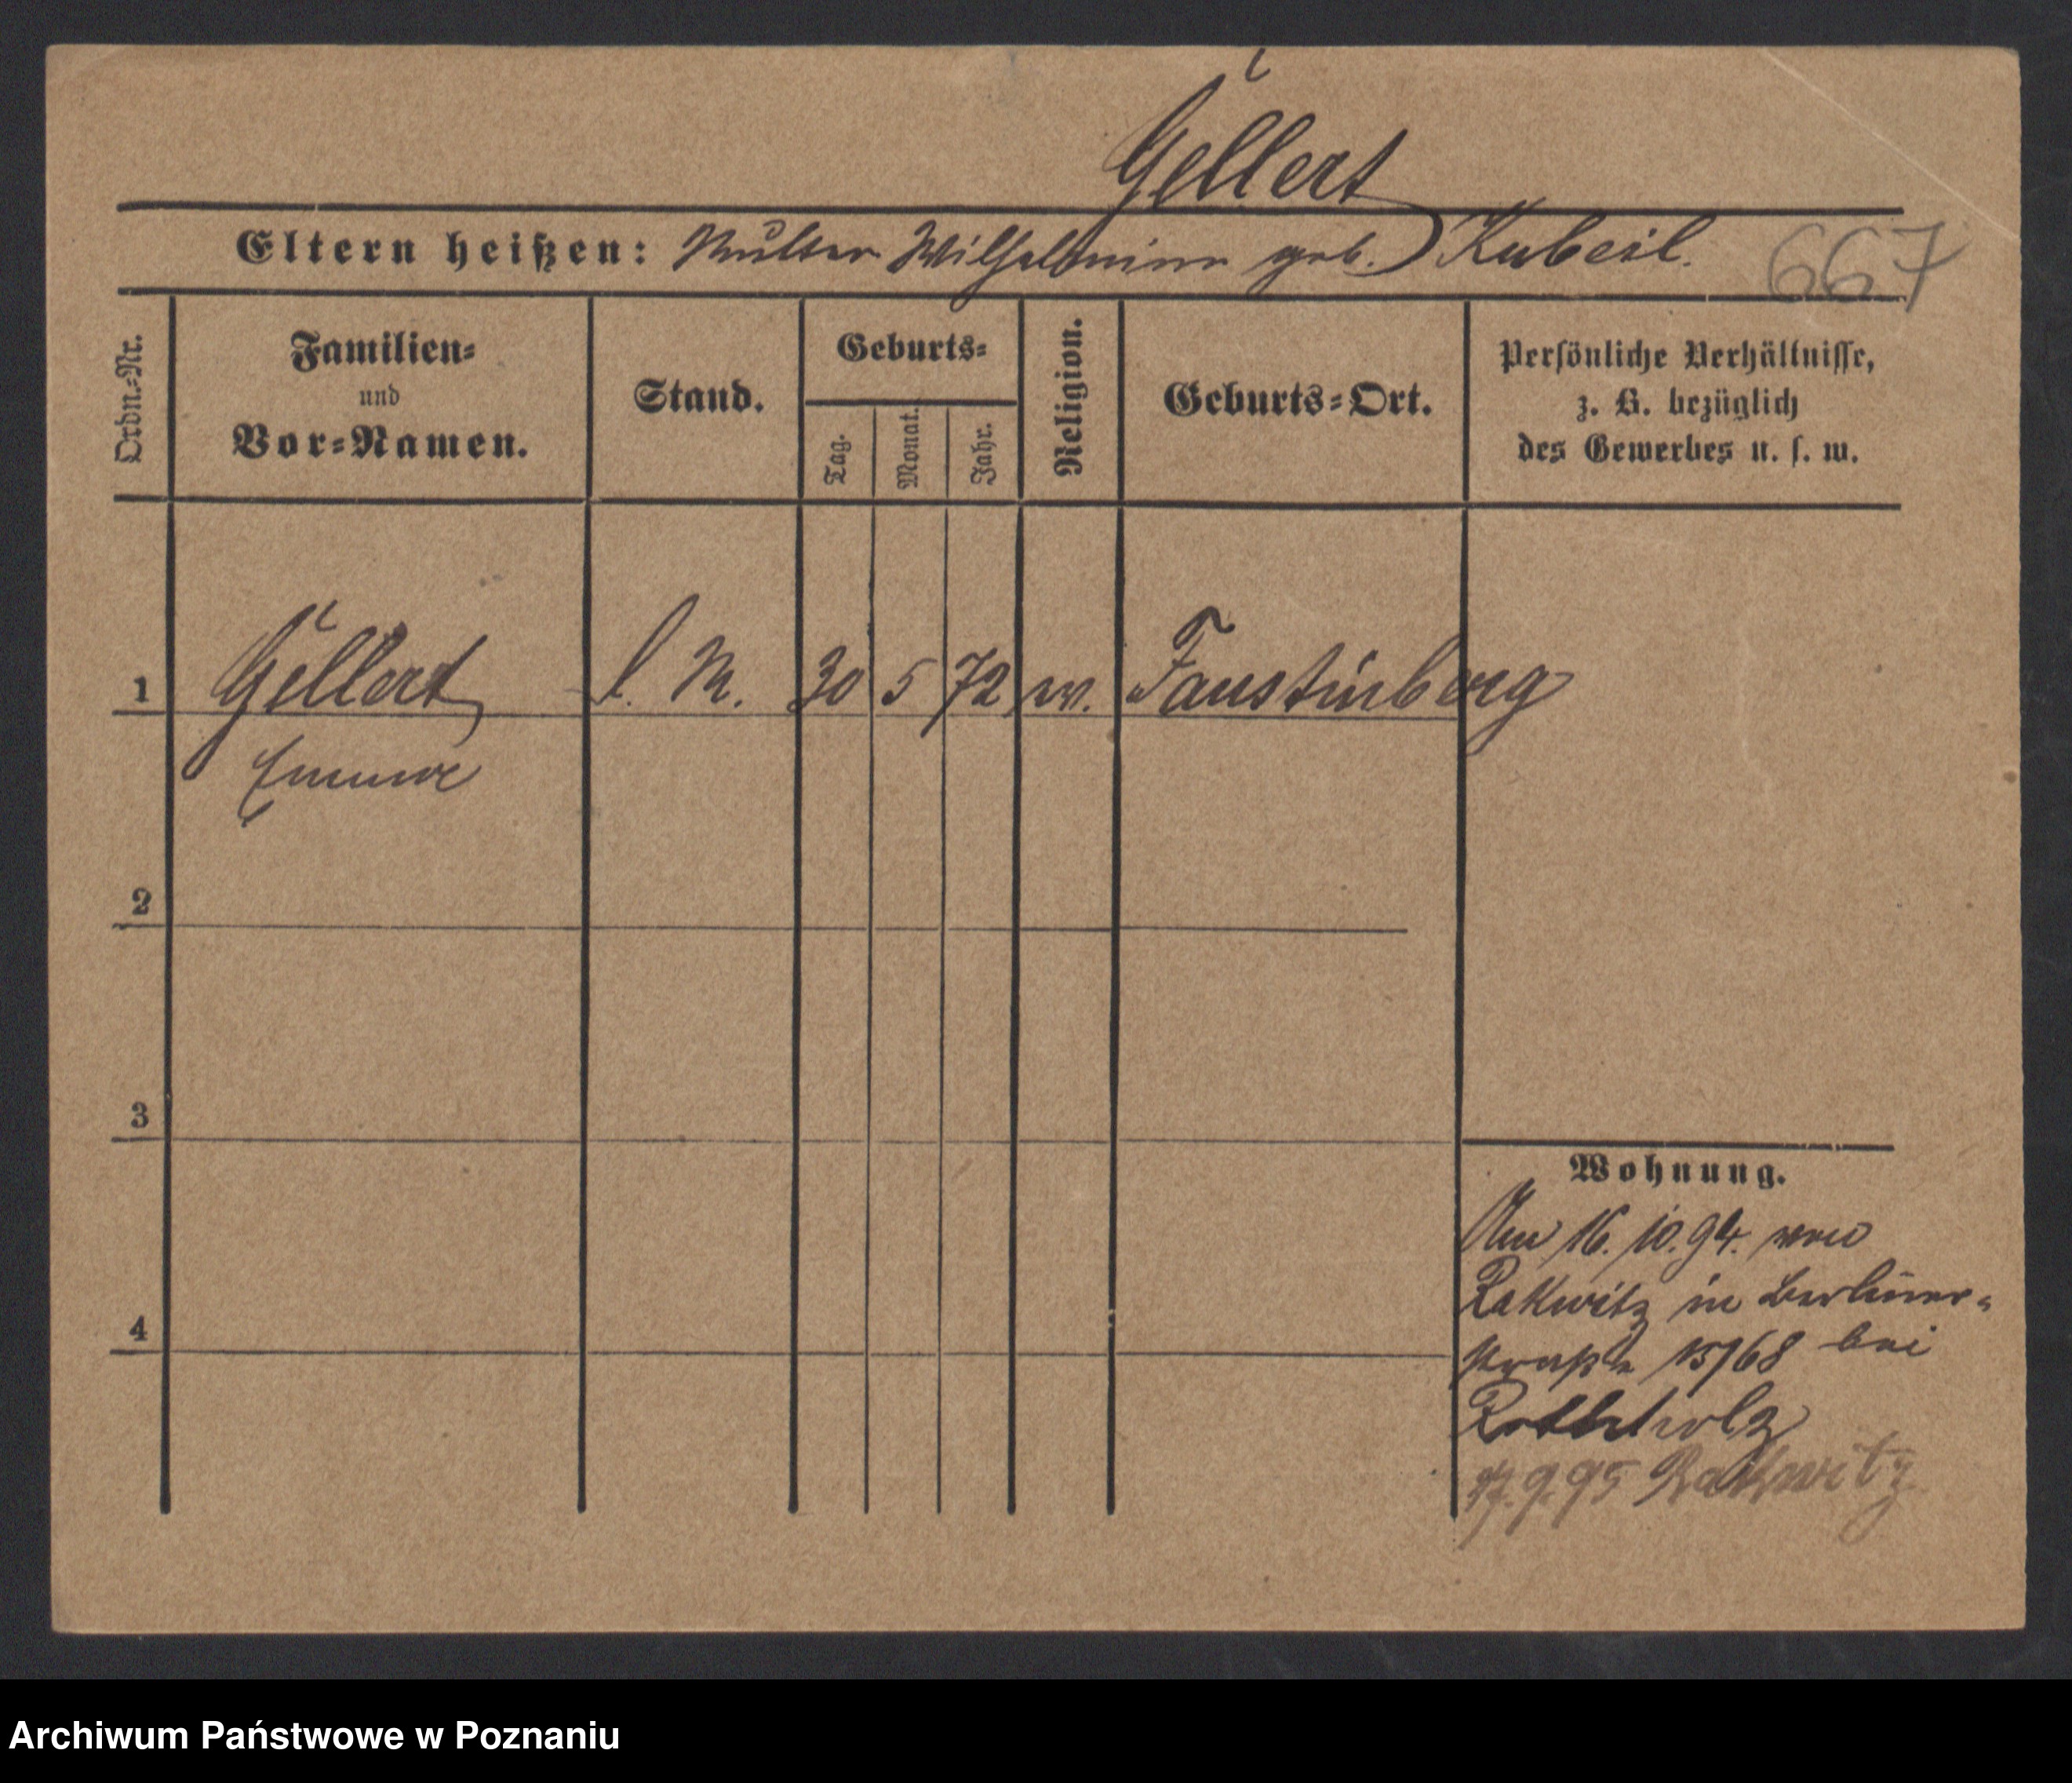 Gellert
Eltern heißen: Mutter Wilhelmine geb. Kubeil.
667
Ordn.-Nr.
Familien-
und
Vor-Namen.
Stand.
Geburts-
Tag.
Monat.
Jahr.
Religion.
Geburts-Ort.
Persönliche Verhältnisse,
z. B. bezüglich
des Gewerbes u. s. w.
1 Gellert l. M. 30 5 72 ev. Faustinberg
Emma
2
3
4
Wohnung.
16. 10. 94. von
Rakwitz in Berliner-
straße 15/68 bei
Rothholz
9.95 Rakwitz
Archiwum Państwowe w Poznaniu